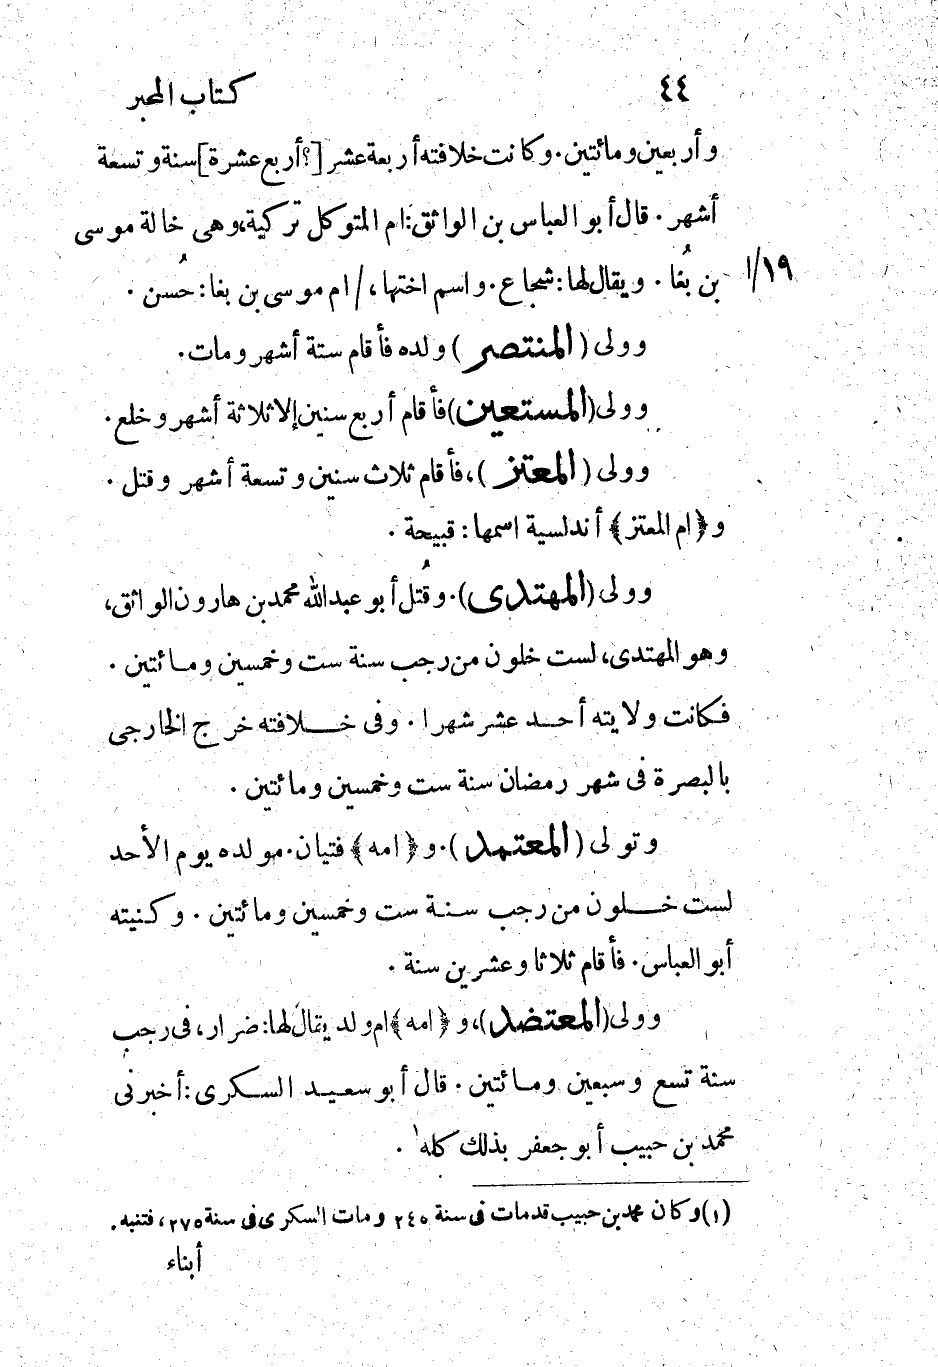 ٤٤ كتاب المحبر
وأربعين ومائتين. وكانت خلافته أربعة عشر [؟ أربع عشرة] سنة وتسعة
أشهر. قال أبو العباس بن الواثق: ام المتوكل تركية، وهى خالة موسى
١٩/ا بن بُغا. ويقال لها: شجاع. واسم اختها، / ام موسى بن بغا: حُسن.
وولى (المنتصر) ولده فأقام ستة أشهر ومات.
وولى (المستعين) فأقام أربع سنين إلا ثلاثة أشهر وخلع.
وولى (المعتز)، فأقام ثلاث سنين وتسعة أشهر وقتل.
و﴿ام المعتز﴾ أندلسية اسمها: قبيحة.
وولى (المهتدى). وقُتل أبو عبد الله محمد بن هارون الواثق،
وهو المهتدى، لست خلون من رجب سنة ست وخمسين ومائتين.
فكانت ولايته أحد عشر شهرا. وفى خلافته خرج الخارجى
بالبصرة فى شهر رمضان سنة ست وخمسين ومائتين.
وتولى (المعتمد). و﴿امه﴾ فتيان. مولده يوم الأحد
لست خلون من رجب سنة ست وخمسين ومائتين. وكنيته
أبو العباس. فأقام ثلاثا وعشرين سنة.
وولى (المعتضد)، و﴿امه﴾ ام ولد يقال لها: ضرار، فى رجب
سنة تسع وسبعين ومائتين. قال أبو سعيد السكرى: أخبرنى
محمد بن حبيب أبو جعفر بذلك كله١.
(١) وكان محمد بن حبيب قد مات فى سنة ٢٤٥ ومات السكرى فى سنة ٢٧٥، فتنبه.
أبناء